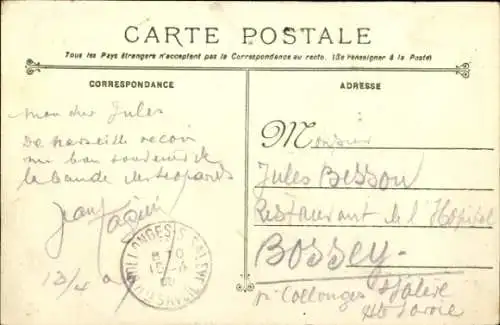 CARTE POSTALE
Tous les Pays étrangers n'acceptent pas la Correspondance au recto. (Se renseigner à la Poste)
CORRESPONDANCE
ADRESSE
mon cher Jules
De Marseille recoir
un bon souvenir de
la bande des
Jean
13/4
Monsieur
Jules Besson
Restaurant de l'Hopital
Bossey
pr Collonges s/ Salève
Hte Savoie
COLLONGES-S-SALEVE
Hte SAVOIE